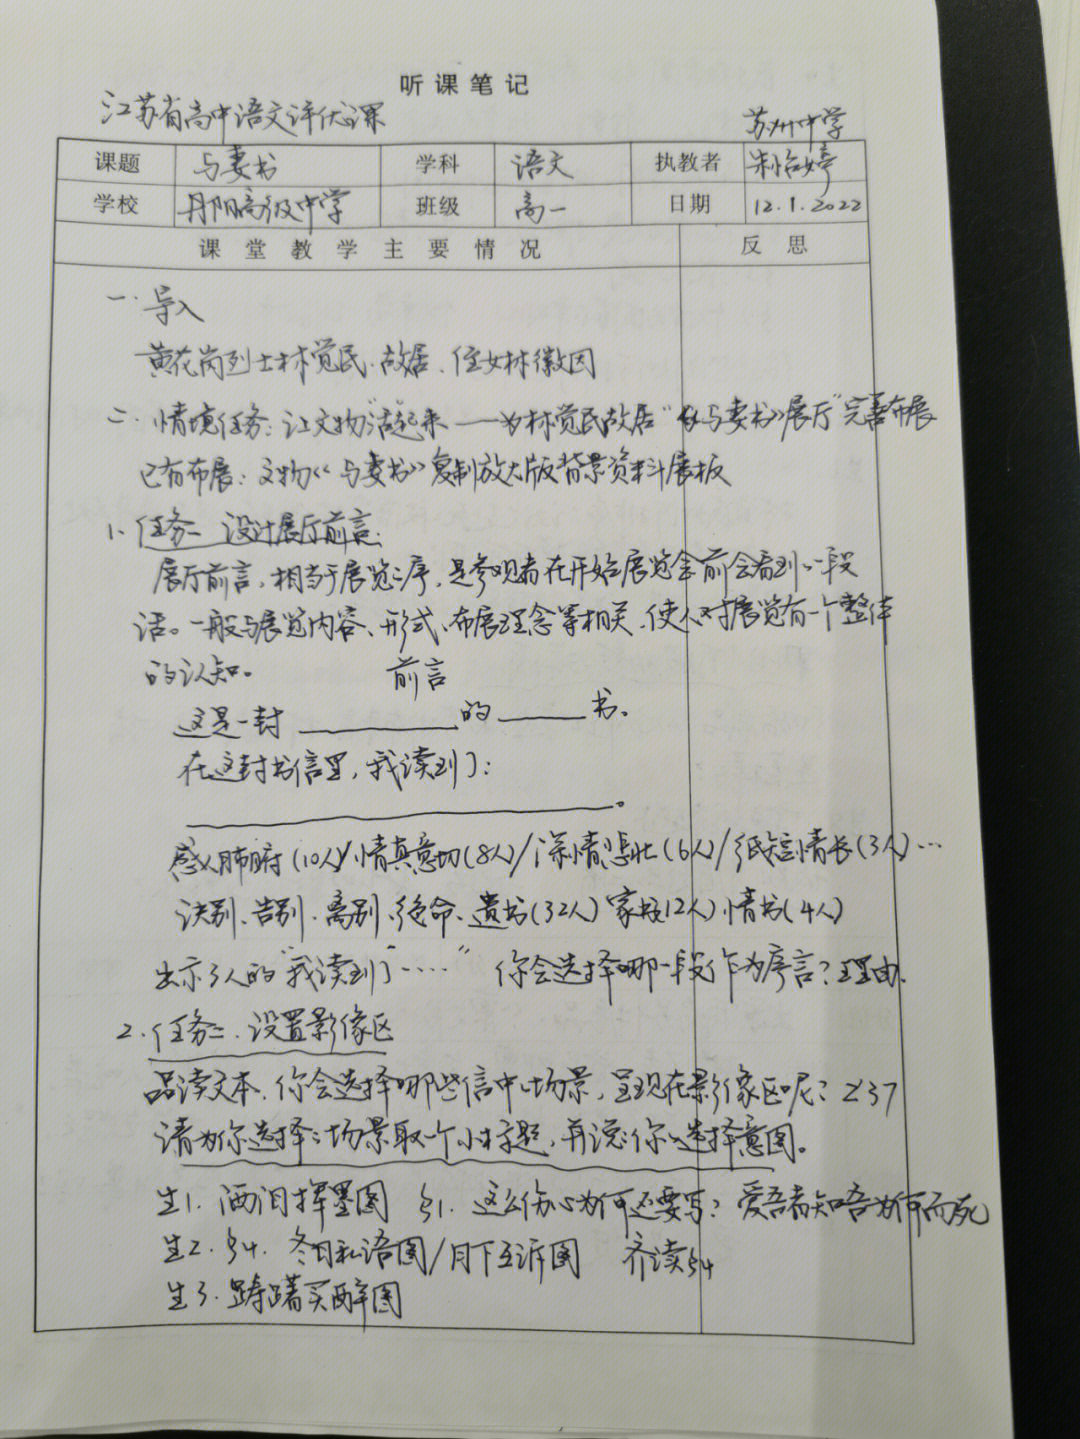 听课笔记
江苏省高中语文评优课
苏州中学
课题 与妻书 学科 语文 执教者 朱怡婷
学校 丹阳高级中学 班级 高一 日期 12.1.2022
课堂教学主要情况 反思
一.导入
黄花岗烈士林觉民.故居.侄女林徽因
二.情境任务:让文物“活”起来——为林觉民故居“《与妻书》展厅”完善布展
已有布展:文物《与妻书》复制放大版背景资料展板
1.任务一 设计展厅前言:
展厅前言,相当于展览之序,是参观者在开始展览会前会看到的一段
话。一般与展览内容、形式、布展理念等相关,使人对展览有一个整体
的认知。 前言
这是一封 的 书。
在这封书信里,我读到了:
。
感人肺腑(10人)/情真意切(8人)/深情悲壮(6人)/纸短情长(3人)…
诀别、告别、离别、绝命、遗书(32人)家书(2人)情书(4人)
出示3人的“我读到了……” 你会选择哪一段作为序言?理由.
2.任务二.设置影像区
品读文本,你会选择哪些信中的场景,呈现在影像区呢?
请为你选择的场景取一个小标题,再说说你的选择意图。
生1.洒泪挥墨图 §1.这么伤心为何还要写?爱吾者知吾为何而死
生2.§4.冬日私语图/月下互诉图 齐读§4
生3.踌躇买醉图